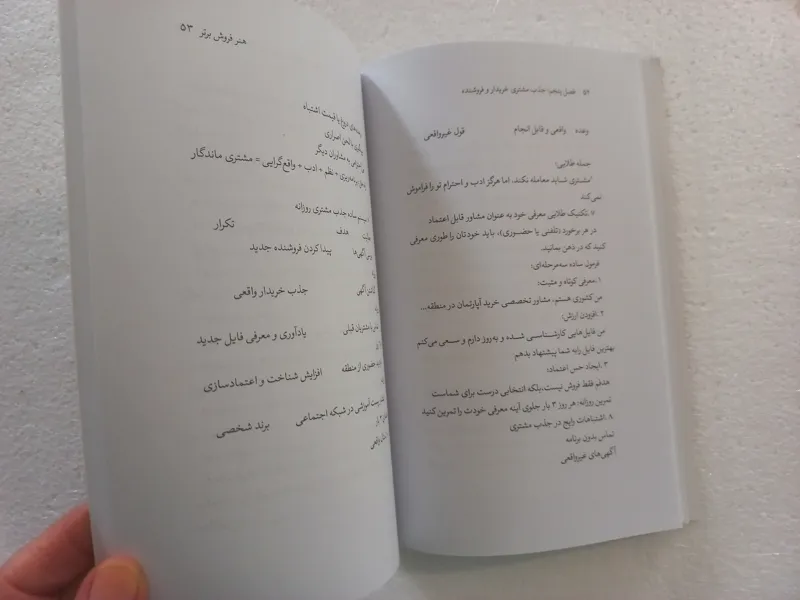 ۵۲ فصل پنجم: جذب مشتری خریدار و فروشنده
وعده واقعی و قابل انجام قول غیرواقعی
جمله طلایی:
مشتری شباید معامله نکند، اما هرگز ادب و احترام تو را فراموش
نمی‌کند
۷.تکنیک طلایی معرفی خود به عنوان مشاور قابل اعتماد
در هر برخورد (تلفنی یا حضوری)، باید خودتان را طوری معرفی
کنید که در ذهن بمانید.
فرمول ساده سه‌مرحله‌ای:
۱.معرفی کوتاه و مثبت:
من کشوری هستم، مشاور تخصصی خرید آپارتمان در منطقه...
۲.افزودن ارزش:
من فایل‌هایی کارشناسی شده و به‌روز دارم و سعی می‌کنم
بهترین فایل رابه شما پیشنهاد بدهم
۳.ایجاد حس اعتماد:
هدفم فقط فروش نیست،بلکه انتخابی درست برای شماست
تمرین روزانه: هر روز ۳ بار جلوی آینه معرفی خودت را تمرین کنید
۸.اشتباهات رایج در جذب مشتری
تماس بدون برنامه
آگهی‌های غیرواقعی
هنر فروش برتر ۵۳
دروغ یا قیمت اشتباه
با لحن اصراری
به مشاوران دیگر
برنامه‌ریزی + نظم + ادب + واقع‌گرایی = مشتری ماندگار
سیستم ساده جذب مشتری روزانه
هدف تکرار
آگهی‌ها پیدا کردن فروشنده جدید
آگهی جذب خریدار واقعی
با مشتریان قبلی یادآوری و معرفی فایل جدید
حضوری از منطقه افزایش شناخت و اعتمادسازی
پست آموزشی در شبکه اجتماعی برند شخصی
واقعی